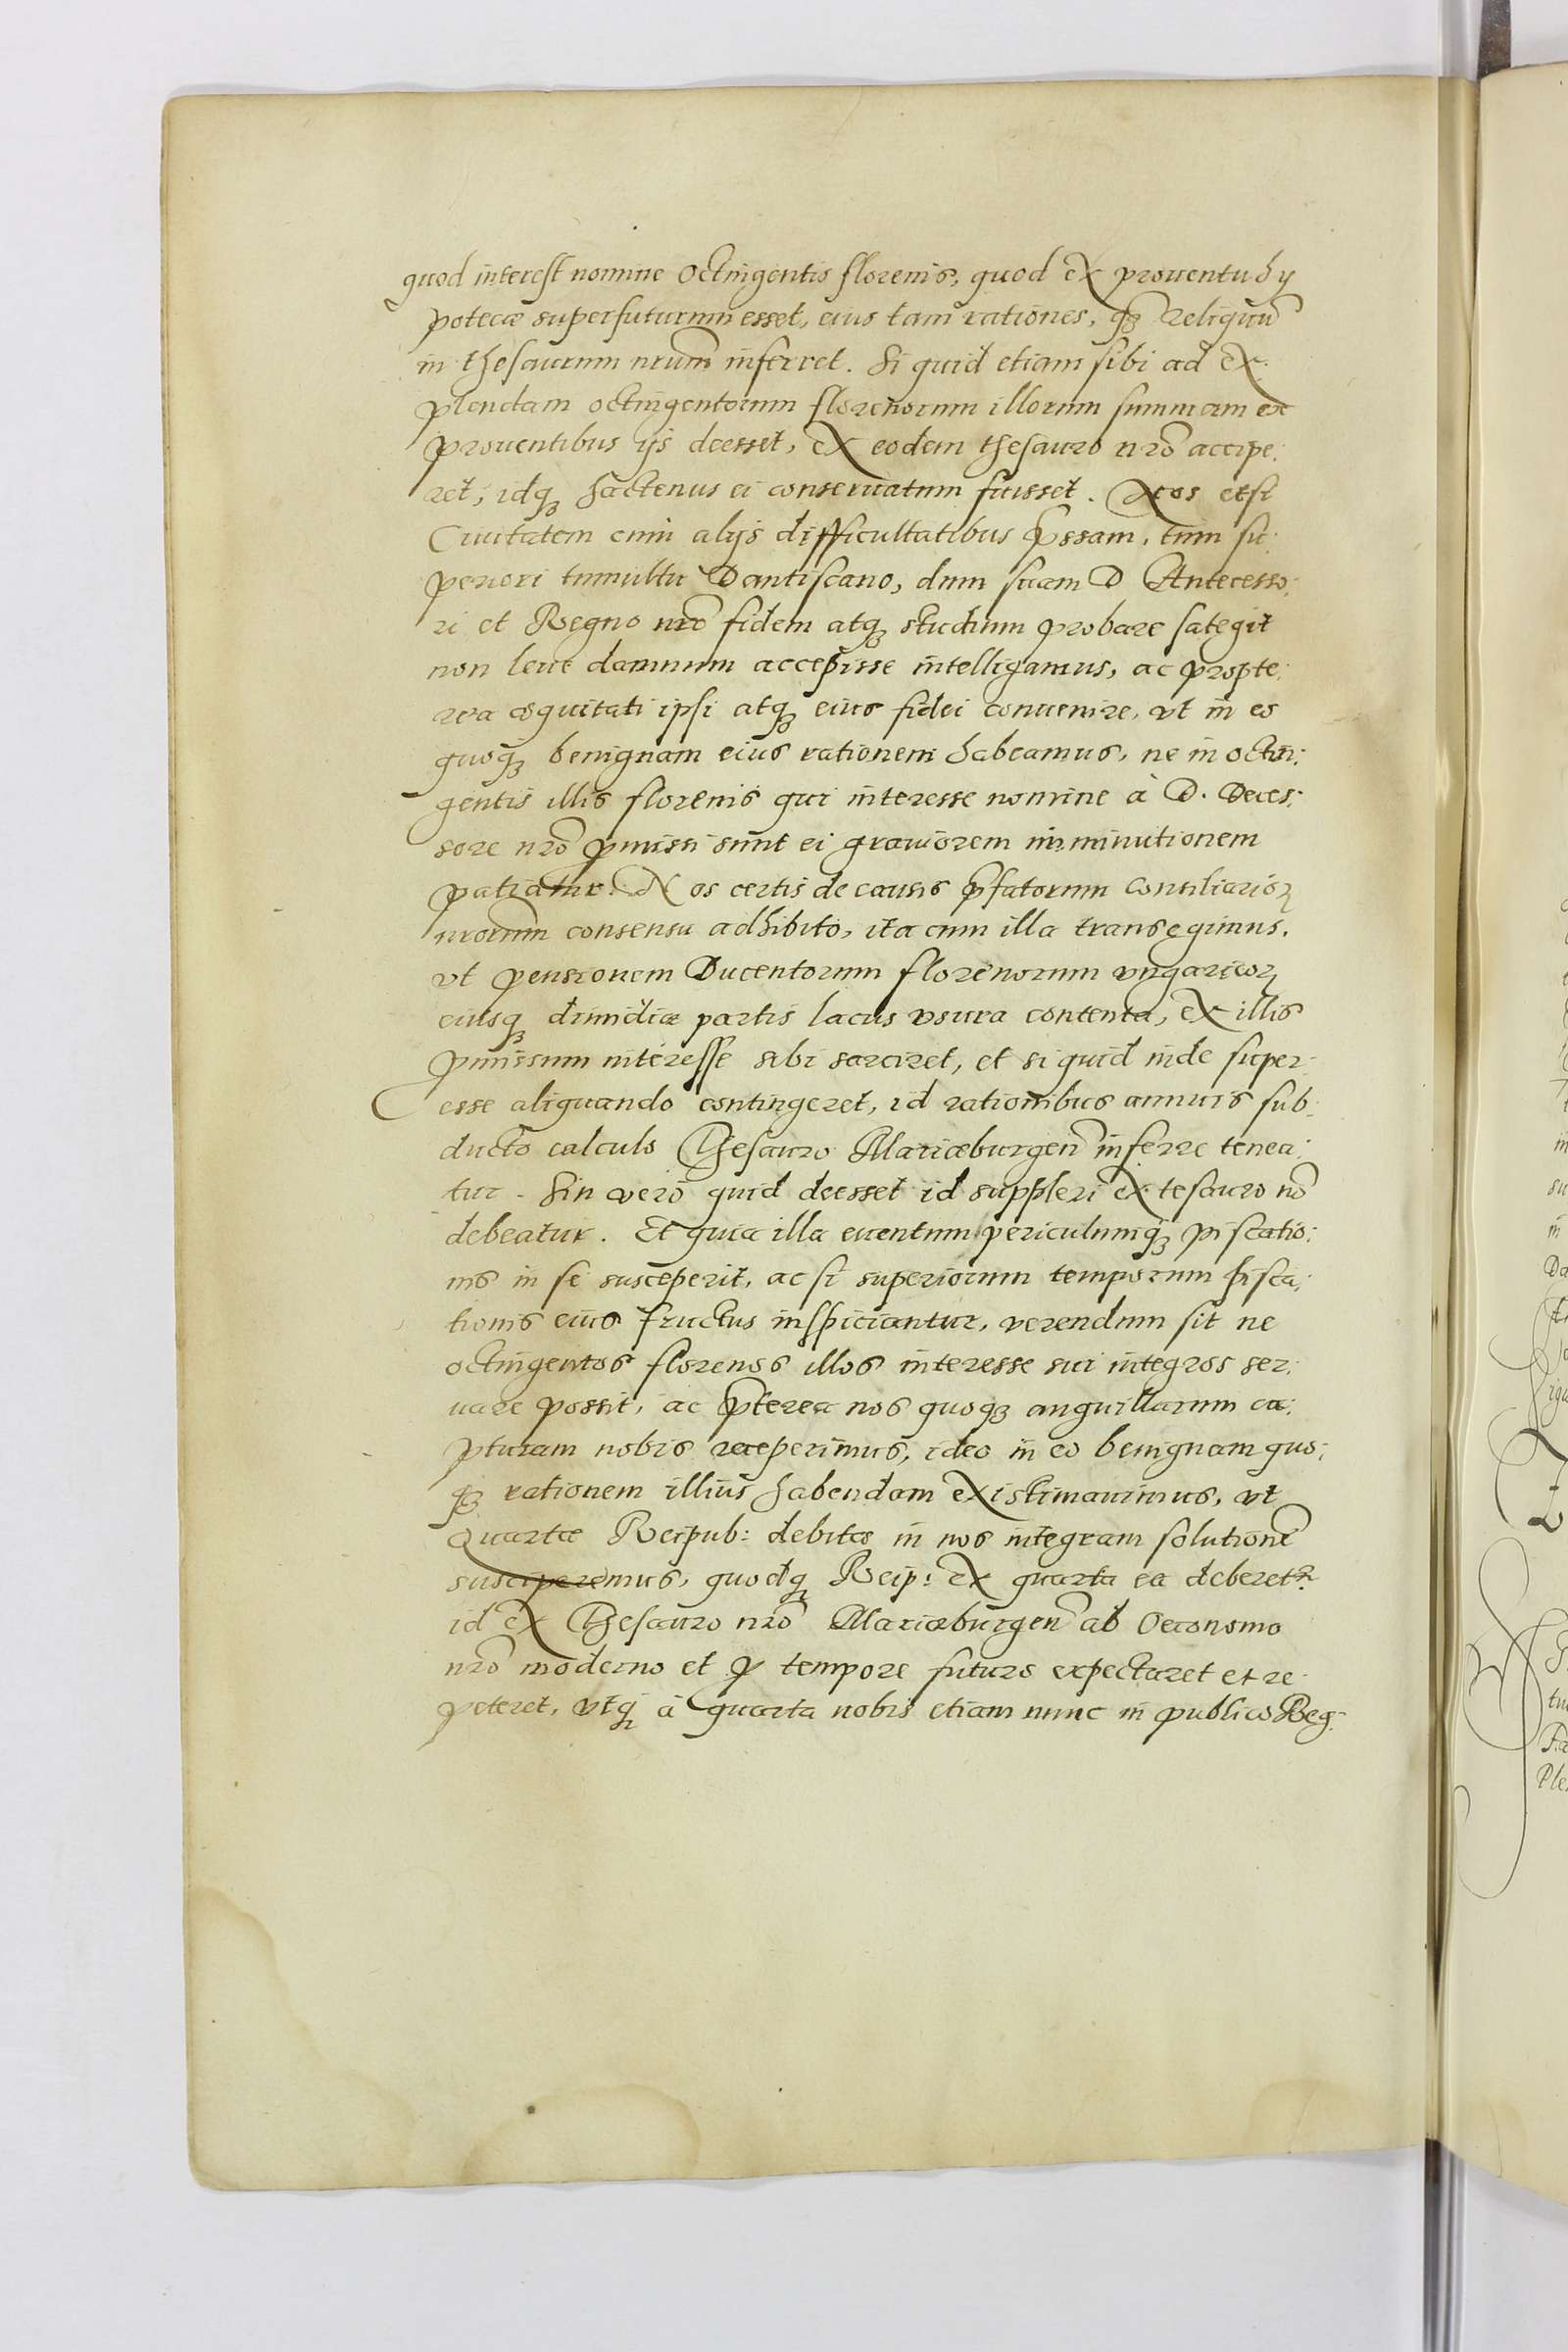 quod interest nomine Octingentis florenis, quod ex prouentu hy
potecæ superfuturum esset, eius tam rationes, q̃ʒ reliquũ
in thesaurum nrum̃ inferret. Si quid etiam sibi ad ex:
plendam octingentorum florenorum illorum summam ex
prouentibus ijs deesset, ex eodem thesauro nrõ accipe:
ret, idqʒ hactenus ei conseruatum fuisset. Nos etsi
Ciuitatem cum alijs difficultatibus p̃ssam, tum su:
periori tumultu Dantiscano, dum suam D Antecesso:
ri et Regno nrõ fidem atqʒ studium probare sategit
non leue damnum accepisse intelligamus, ac propte:
rea æquitati ipsi atqʒ eius fidei conuenire, vt in eo
quoqʒ benignam eius rationem habeamus, ne in octin:
gentis illis florenis qui interesse nomine à D. Deces:
sore nrõ ꝓmissi sunt ei grauiorem imminutionem
patiatur. Nos certis de causis p̃fatorum Consiliarioꝝ
nrorum̃ consensu adhibito, ita cum illa transegimus.
vt pensionem Ducentorum florenorum vngaricoꝝ
eiusqʒ dimidiæ partis lacus vsura contenta, ex illis
ꝓmissum interesse sibi sarciret, et si quid inde super:
esse aliquando contingeret, id rationibus annuis sub:
ducto calculo Thesauro Mariæburgen̄ inferre tenea:
tur. Sin vero quid deesset id suppleri ex tesauro nõ
debeatur. Et quia illa euentum periculumqʒ piscatio:
nis in se susceperit, ac si superiorum temporum pisca:
tionis eius fructus inspiciantur, verendum sit ne
octingentos florenos illos interesse sui integros ser:
uare possit, ac p̃terea nos quoqʒ anguillarum ca:
pturam nobis receperimus, ideo in eo benignam quo:
qʒ rationem illius habendam existimauimus, vt
Quartæ Reipub: debitæ in nos integram solutionẽ
susciperemus, quodqʒ Reip: ex quarta ea deberetꝛ
id ex Thesauro nrõ Mariæburgen̄ ab Oeconomo
nrõ moderno et ꝓ tempore futuro expectaret et re
peteret, vtqʒ à quarta nobis etiam nunc in publico Reg: